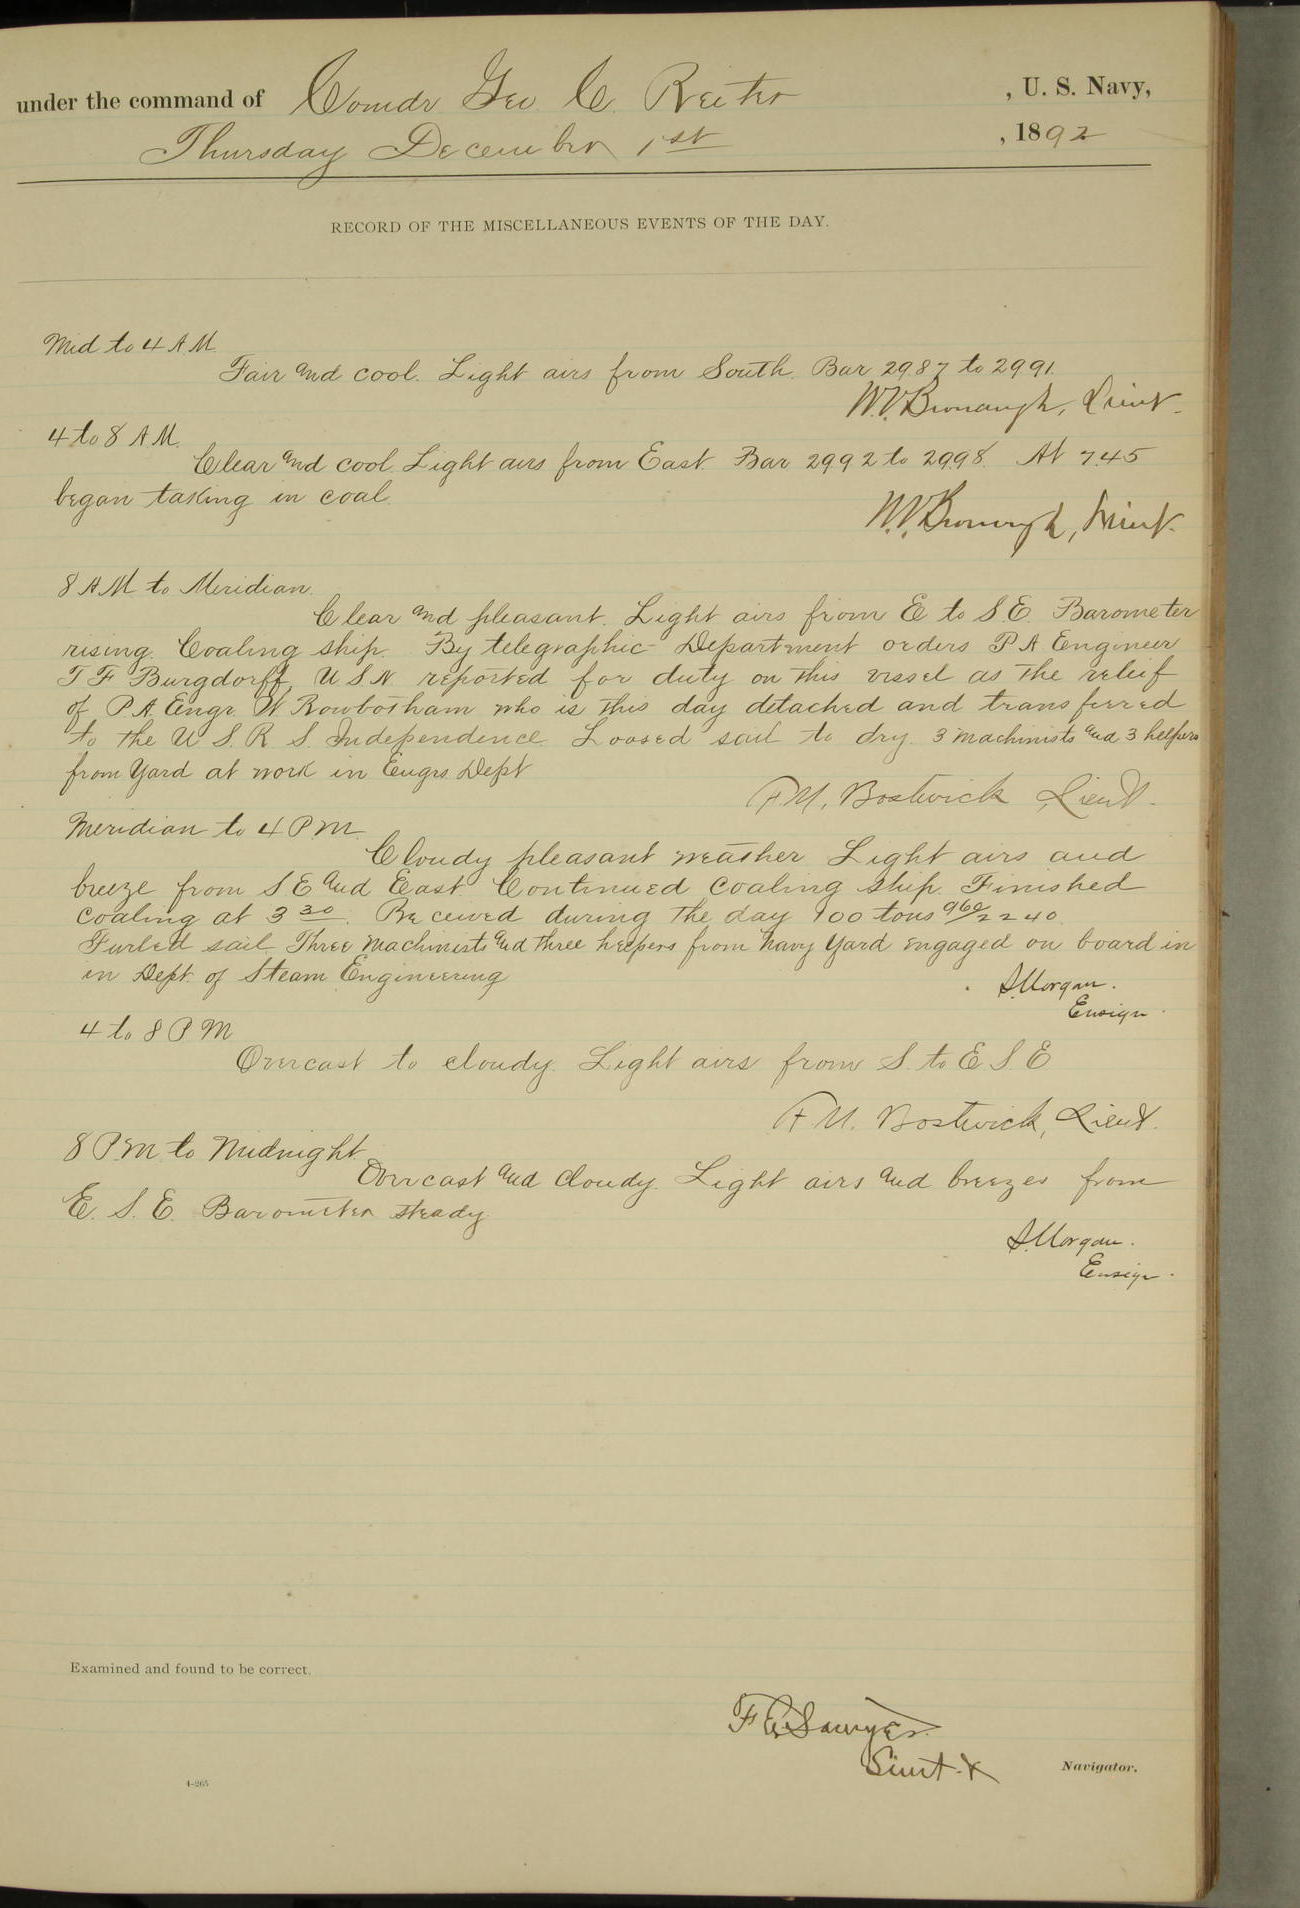 under the command of Comdr Geo C. Reiter , U. S. Navy,
Thursday December 1st , 1892
RECORD OF THE MISCELLANEOUS EVENTS OF THE DAY.
Mid to 4 A M.
Fair and cool. Light airs from South. Bar 29.87 to 29.91.
W.V. Bronaugh, Lieut.
4 to 8 A.M.
Clear and cool. Light airs from East. Bar 29.92 to 29.98. At 7.45
began taking in coal.
W.V. Bronaugh, Lieut.
8 AM to Meridian.
Clear and pleasant. Light airs from E to S.E. Barometer
rising. Coaling ship. By telegraphic Department orders P A Engineer
T F Burgdorff, U S N. reported for duty on this vessel as the relief
of P A Engr. W Rowbotham who is this day detached and transferred
to the U. S. R. S. Independence. Loosed sail to dry. 3 machinists and 3 helpers
from Yard at work in Engrs Dept
F.M. Bostwick Lieut.
Meridian to 4 P.M.
Cloudy pleasant weather Light airs and
breeze from S E and East Continued coaling ship. Finished
coaling at 3 30. Received during the day 100 tons 960/2240.
Furled sail Three machinists and three helpers from Navy Yard engaged on board in
in Dept. of Steam Engineering
S. Morgan.
Ensign.
4 to 8 P M
Overcast to cloudy. Light airs from S. to E S. E
F.M. Bostwick, Lieut.
8 P.M. to Midnight
Overcast and cloudy. Light airs and breezes from
E. S. E. Barometer steady
S. Morgan.
Ensign.
Examined and found to be correct.
F E Sawyer
Lieut. &
Navigator.
4-265